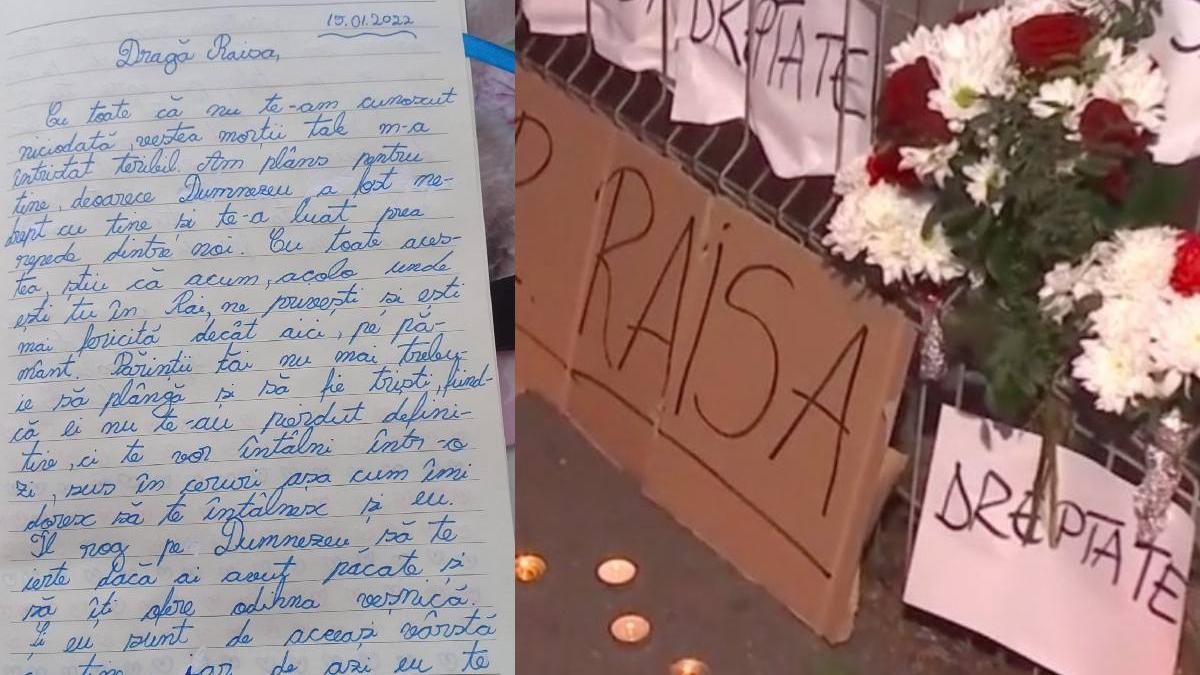 15.01.2022
Dragă Raisa,
Cu toate că nu te-am cunoscut
niciodată, vestea morții tale m-a
întristat teribil. Am plâns pentru
tine, deoarece Dumnezeu a fost ne-
drept cu tine și te-a luat prea
repede dintre noi. Cu toate aces-
tea, știu că acum, acolo unde
ești tu în Rai, ne privești și ești
mai fericită decât aici, pe pă-
mânt. Părinții tăi nu mai trebu-
ie să plângă și să fie triști, fiind-
că ei nu te-au pierdut defini-
tiv, ci te vor întâlni într-o
zi, sus în ceruri așa cum îmi
doresc să te întâlnesc și eu.
Îl rog pe Dumnezeu să te
ierte dacă ai avut păcate și
să îți ofere odihna veșnică.
Și eu sunt de aceeași vârstă
cu tine, iar de azi eu te
DREPTATE
RAISA
DREPTATE